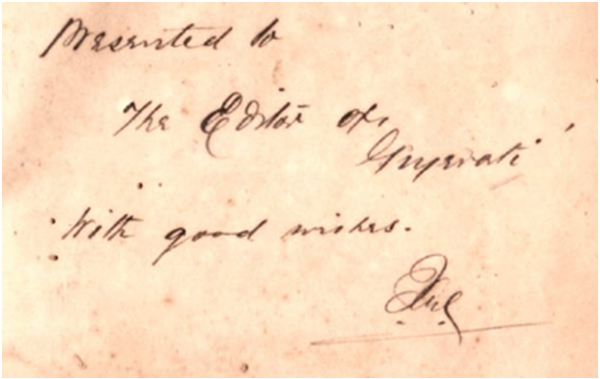 Presented to
The Editor of,
Gujerati
With good wishes.